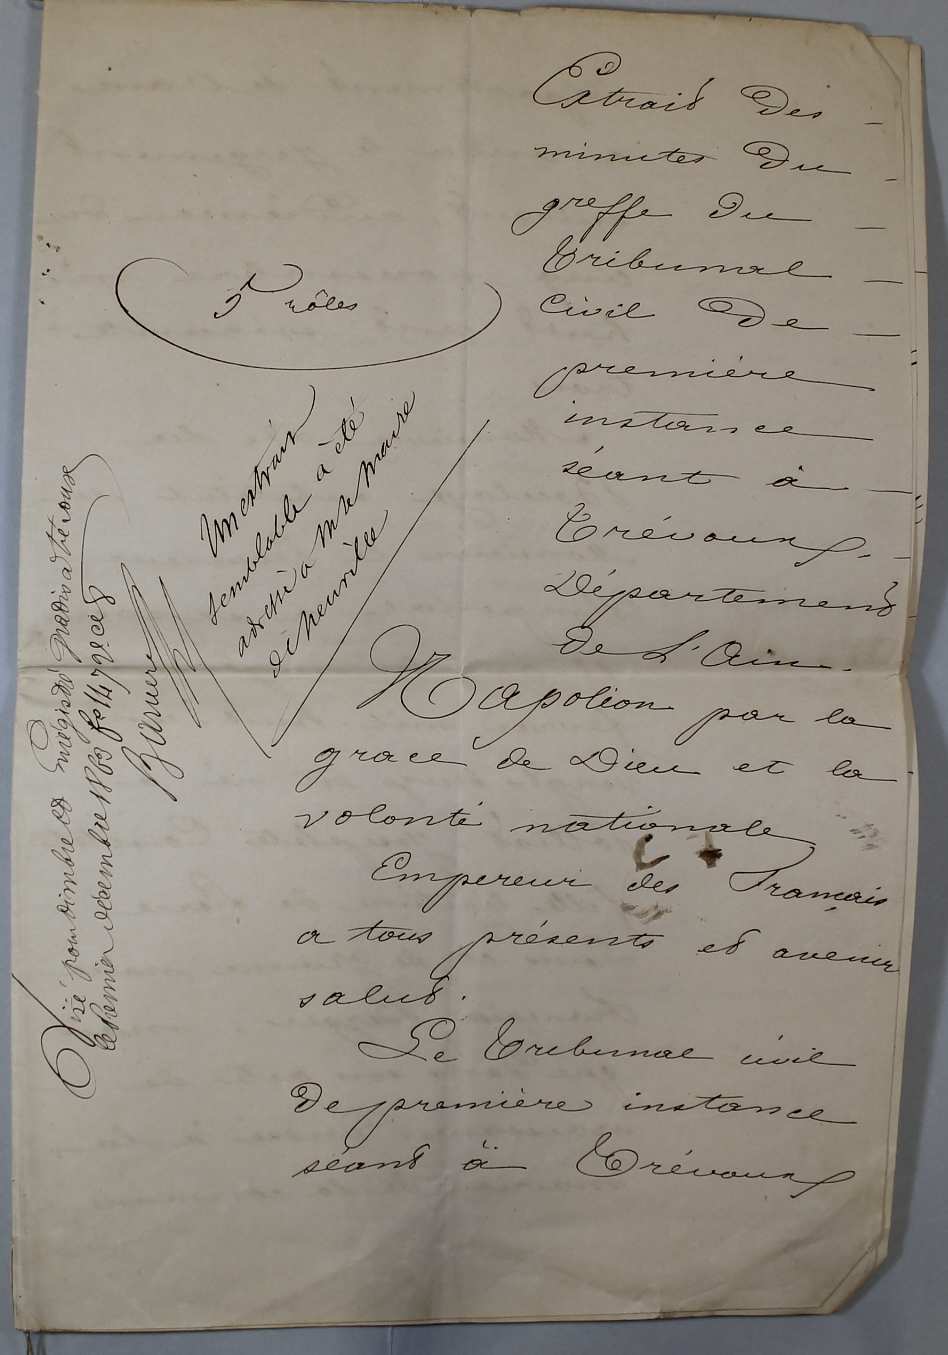 Extrait des
minutes du
greffe du
tribunal
civil de
première
instance
séant à
Trévoux
Département
de l'Ain
5 rôles
Un extrait
semblable a été
adressé à Mr le Maire
de Neuville
Visé pour timbre et enregistré gratis à Trévoux
le premier décembre 1863 fo 147 Vo
Napoléon par la
grace de Dieu et la
volonté nationale
Empereur des Français
a tous présents et avenir
salut.
Le tribunal civil
de première instance
séant à Trévoux